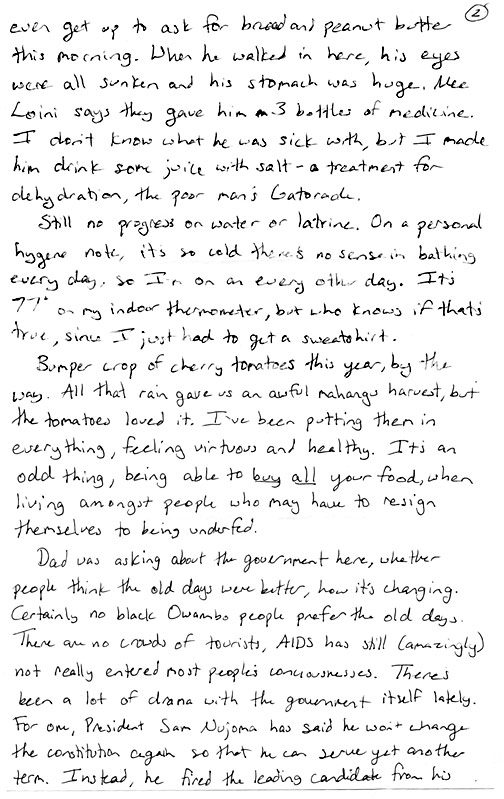 2
even get up to ask for bread and peanut butter
this morning. When he walked in here, his eyes
were all sunken and his stomach was huge. Mee
Loini says they gave him 3 bottles of medicine.
I don't know what he was sick with, but I made
him drink some juice with salt - a treatment for
dehydration, the poor man's Gatorade.
Still no progress on water or latrine. On a personal
hygene note, it's so cold there's no sense in bathing
every day, so I'm on an every other day. It's
77° on my indoor thermometer, but who knows if that's
true, since I just had to get a sweatshirt.
Bumper crop of cherry tomatoes this year, by the
way. All that rain gave us an awful mahangu harvest, but
the tomatoes loved it. I've been putting them in
everything, feeling virtuous and healthy. It's an
odd thing, being able to buy all your food, when
living amongst people who may have to resign
themselves to being underfed.
Dad was asking about the government here, whether
people think the old days were better, how it's changing.
Certainly no black Owambo people prefer the old days.
There are no crowds of tourists, AIDS has still (amazingly)
not really entered most people's conciousnesses. There's
been a lot of drama with the government itself lately.
For one, President Sam Nujoma has said he won't change
the constitution again so that he can serve yet another
term. Instead, he fired the leading candidate from his